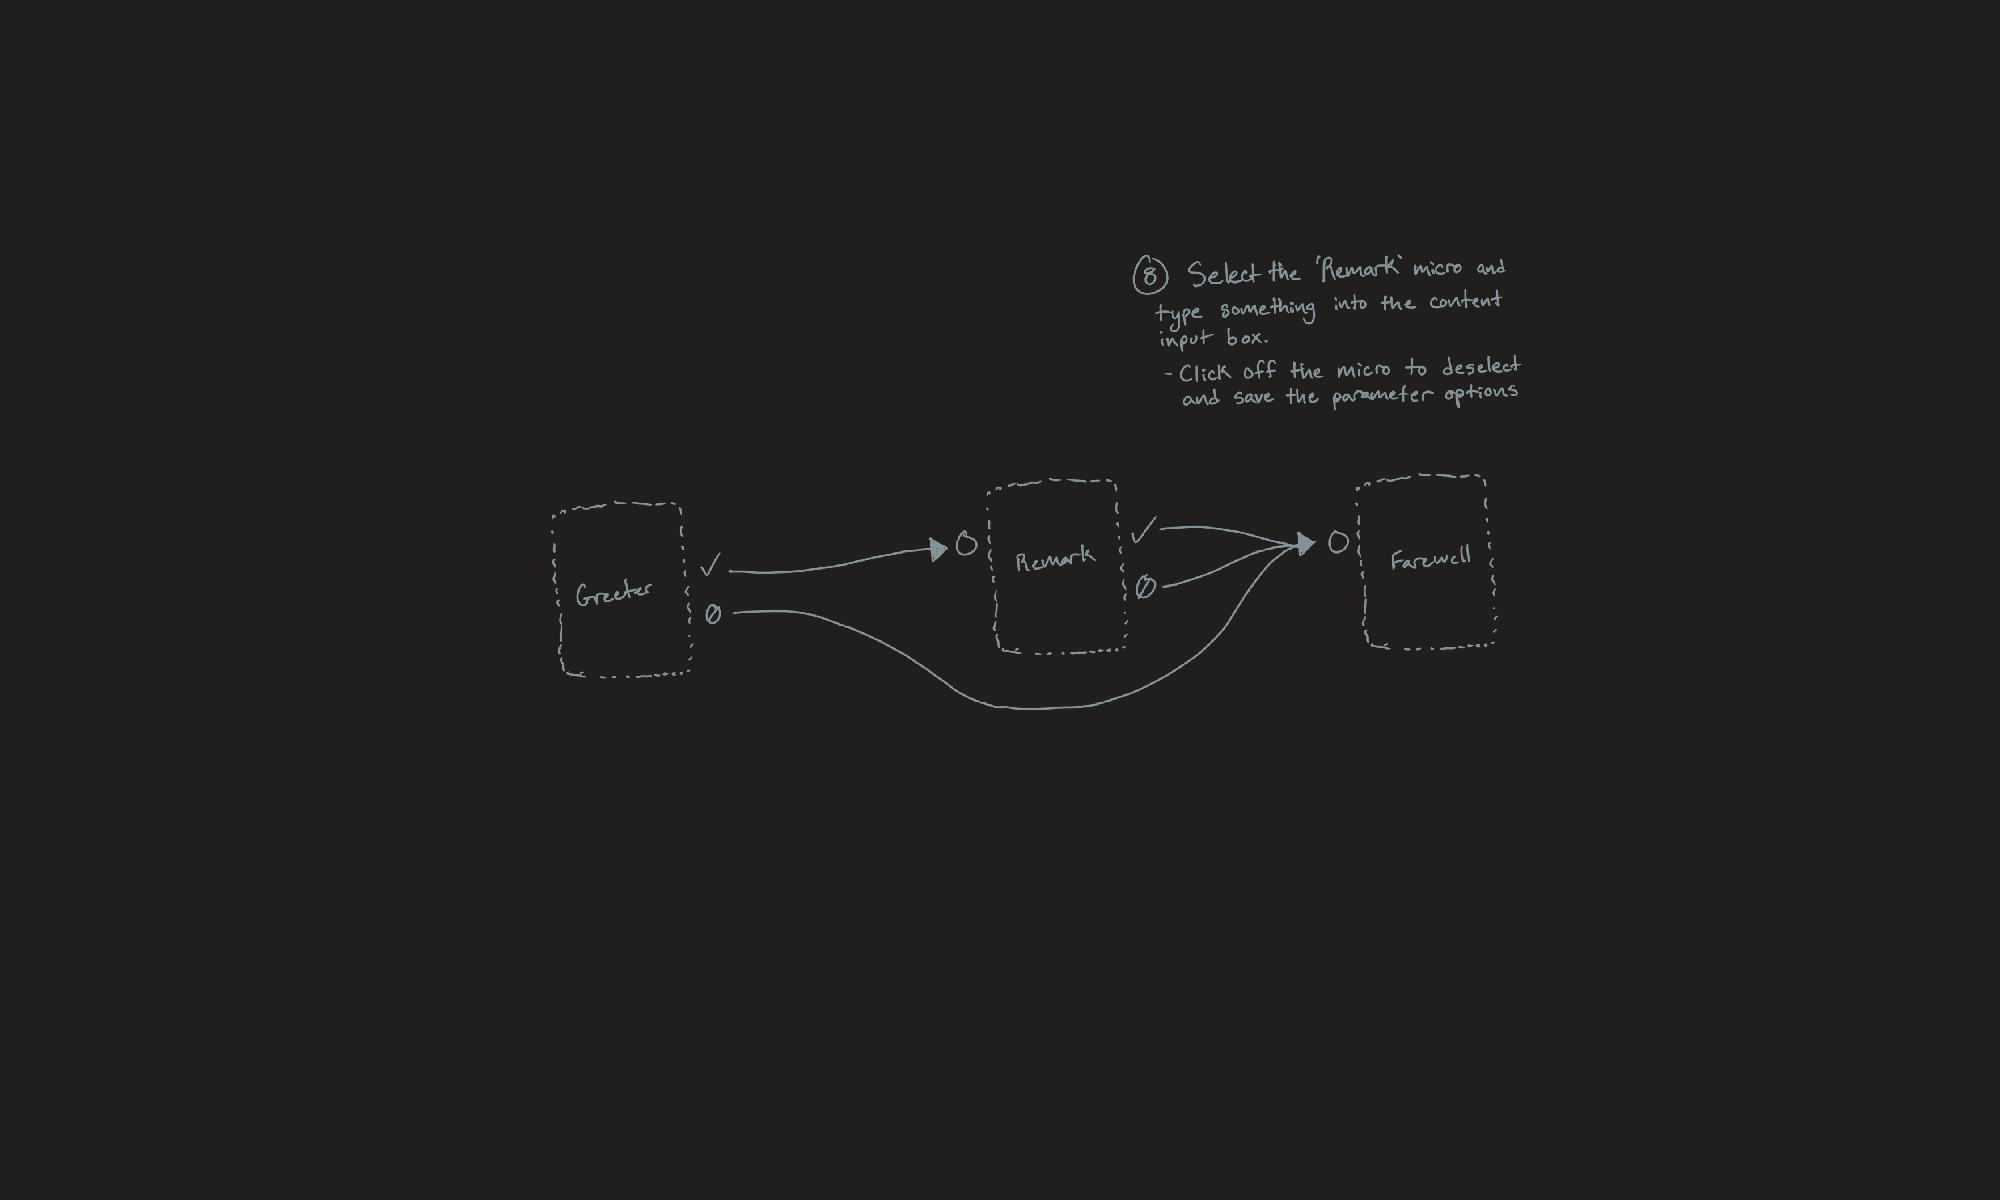 8 Select the 'Remark' micro and
type something into the content
input box.
- Click off the micro to deselect
and save the parameter options
Greeter
Remark
Farewell